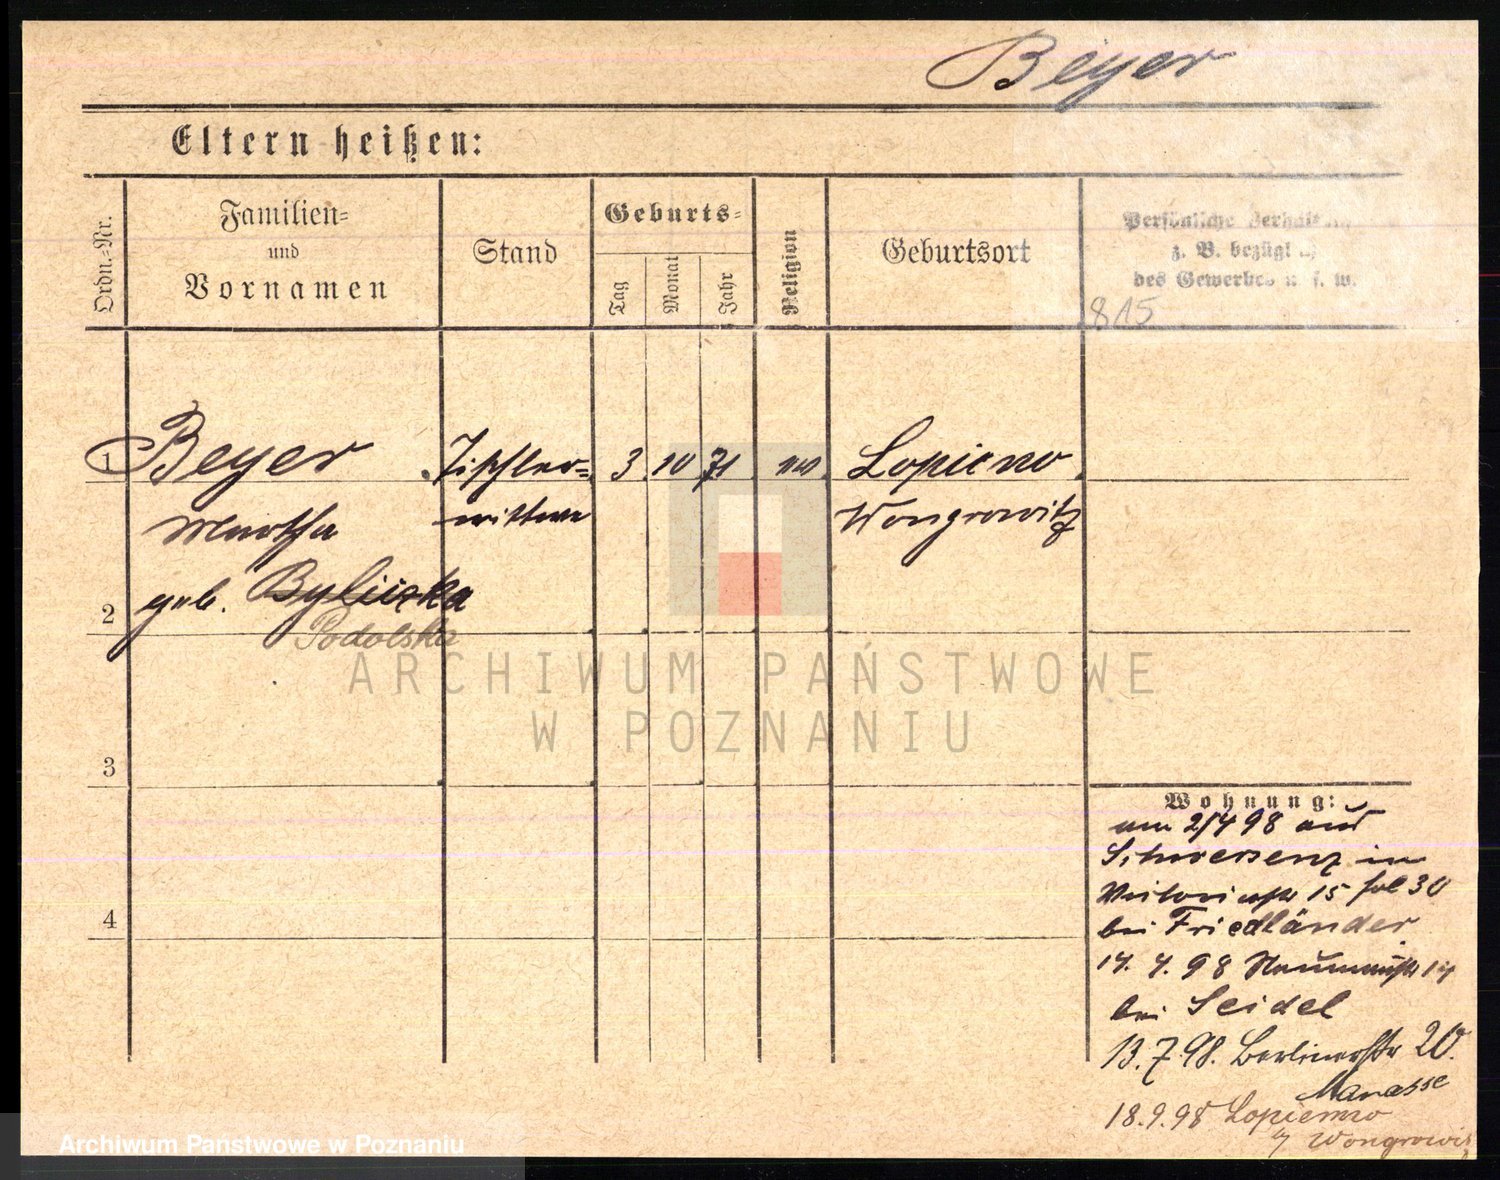 Beyer
Eltern heißen:
Ordn.=Nr.
Familien=
und
Vornamen
Stand
Geburts=
Tag
Monat
Jahr
Religion
Geburtsort
Persönliche Verhältn
z. B. bezügl
des Gewerbes u. s. w.
815
1 Beyer Tischler= 3 10 71 Lopieno
Martha wittwe Wongrowitz
2 geb. Byliczka
Podolska
ARCHIWUM PAŃSTWOWE
W POZNANIU
3
4
Wohnung:
am 2/4 98 aus
Schwersenz in
Victoriastr 15 fol 30
bei Friedländer
14. 4. 98 Naumannstr 14
bei Seidel
13.7.98. Berlinerstr 20.
Manasse
18.9.98 Lopienno
Wongrowitz
Archiwum Państwowe w Poznaniu